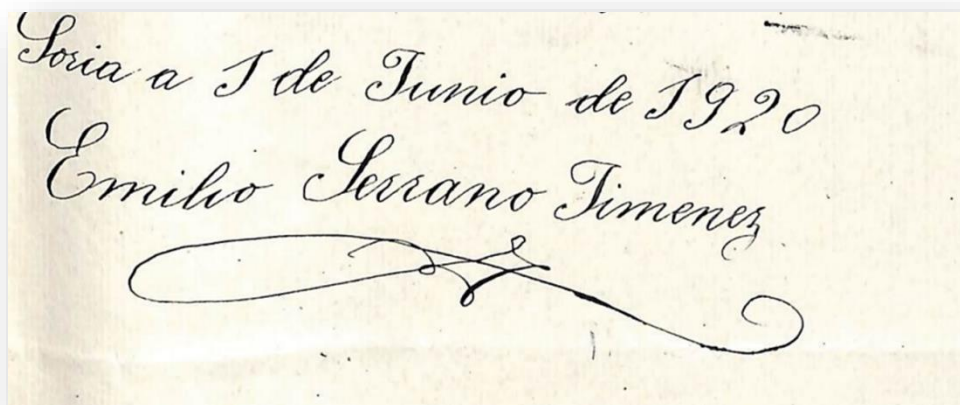 Soria a 1 de Junio de 1920
Emilio Serrano Jimenez